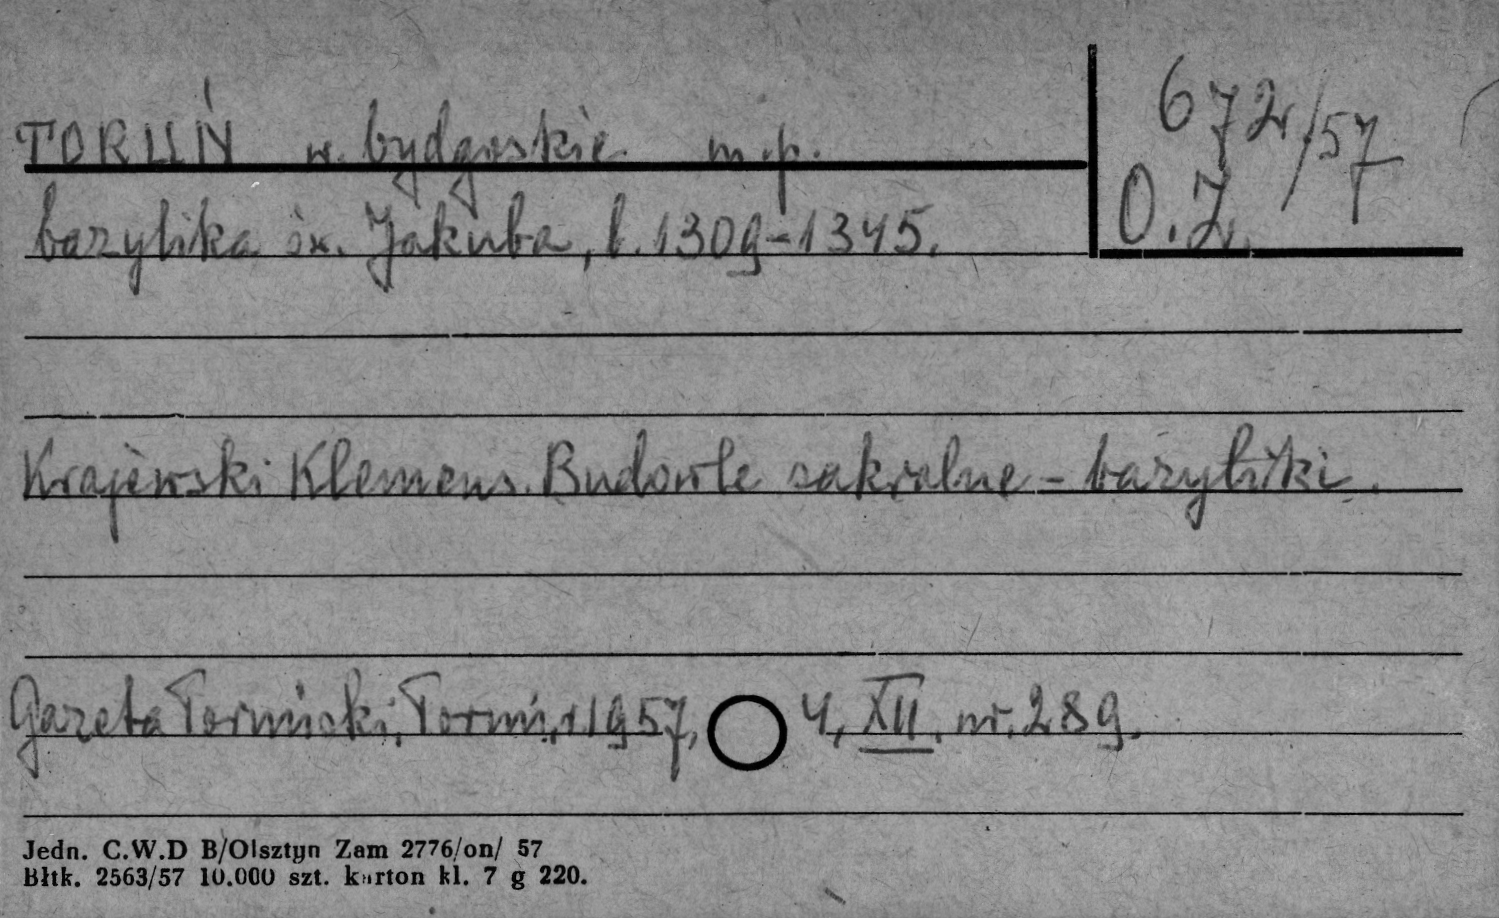 TORUŃ w. bydgoskie m.p.
672/57
O.Z.
bazylika św. Jakuba, b. 1309-1345.
Krajewski Klemens. Budowle sakralne - bazyliki.
Gazeta Toruńska, Toruń, r. 1957, 4, XII. nr. 289.
Jedn. C.W.D B/Olsztyn Zam 2776/on/ 57
Błtk. 2563/57 10.000 szt. karton kl. 7 g 220.